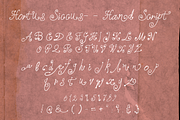 Hortus Siccus -- Hand Script
A B C D E F G H I J K L M N
O P Q R S T U V W X Y Z
a b c d e f g h i j k l m n o p q
r s t u v w x y z
0 1 2 3 4 5 6 7 8 9